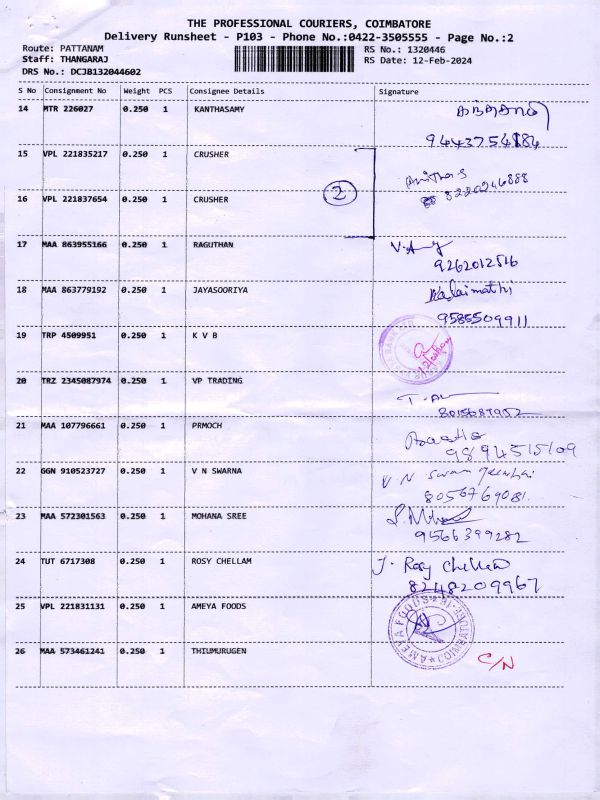 THE PROFESSIONAL COURIERS, COIMBATORE
Delivery Runsheet - P103 - Phone No.:0422-3505555 - Page No.:2
Route: PATTANAM RS No.: 1320446
Staff: THANGARAJ RS Date: 12-Feb-2024
DRS No.: DCJB132044602
S No Consignment No Weight PCS Consignee Details Signature
14 MTR 226027 0.250 1 KANTHASAMY
9443754184
15 VPL 221835217 0.250 1 CRUSHER
8220246888
2
16 VPL 221837654 0.250 1 CRUSHER
17 MAA 863955166 0.250 1 RAGUTHAN
9262012516
18 MAA 863779192 0.250 1 JAYASOORIYA Kalaimathi
9585509911
19 TRP 4509951 0.250 1 K V B
20 TRZ 2345087974 0.250 1 VP TRADING
8015687952
21 MAA 107796661 0.250 1 PRMOCH
9894515109
22 GGN 910523727 0.250 1 V N SWARNA V N Swarn
8056769081.
23 MAA 572301563 0.250 1 MOHANA SREE
9566399282
24 TUT 6717308 0.250 1 ROSY CHELLAM J. Rosy Chellam
8248209967
25 VPL 221831131 0.250 1 AMEYA FOODS AMEYA FOODS COIMBATORE-18
26 MAA 573461241 0.250 1 THIUMURUGEN C/N